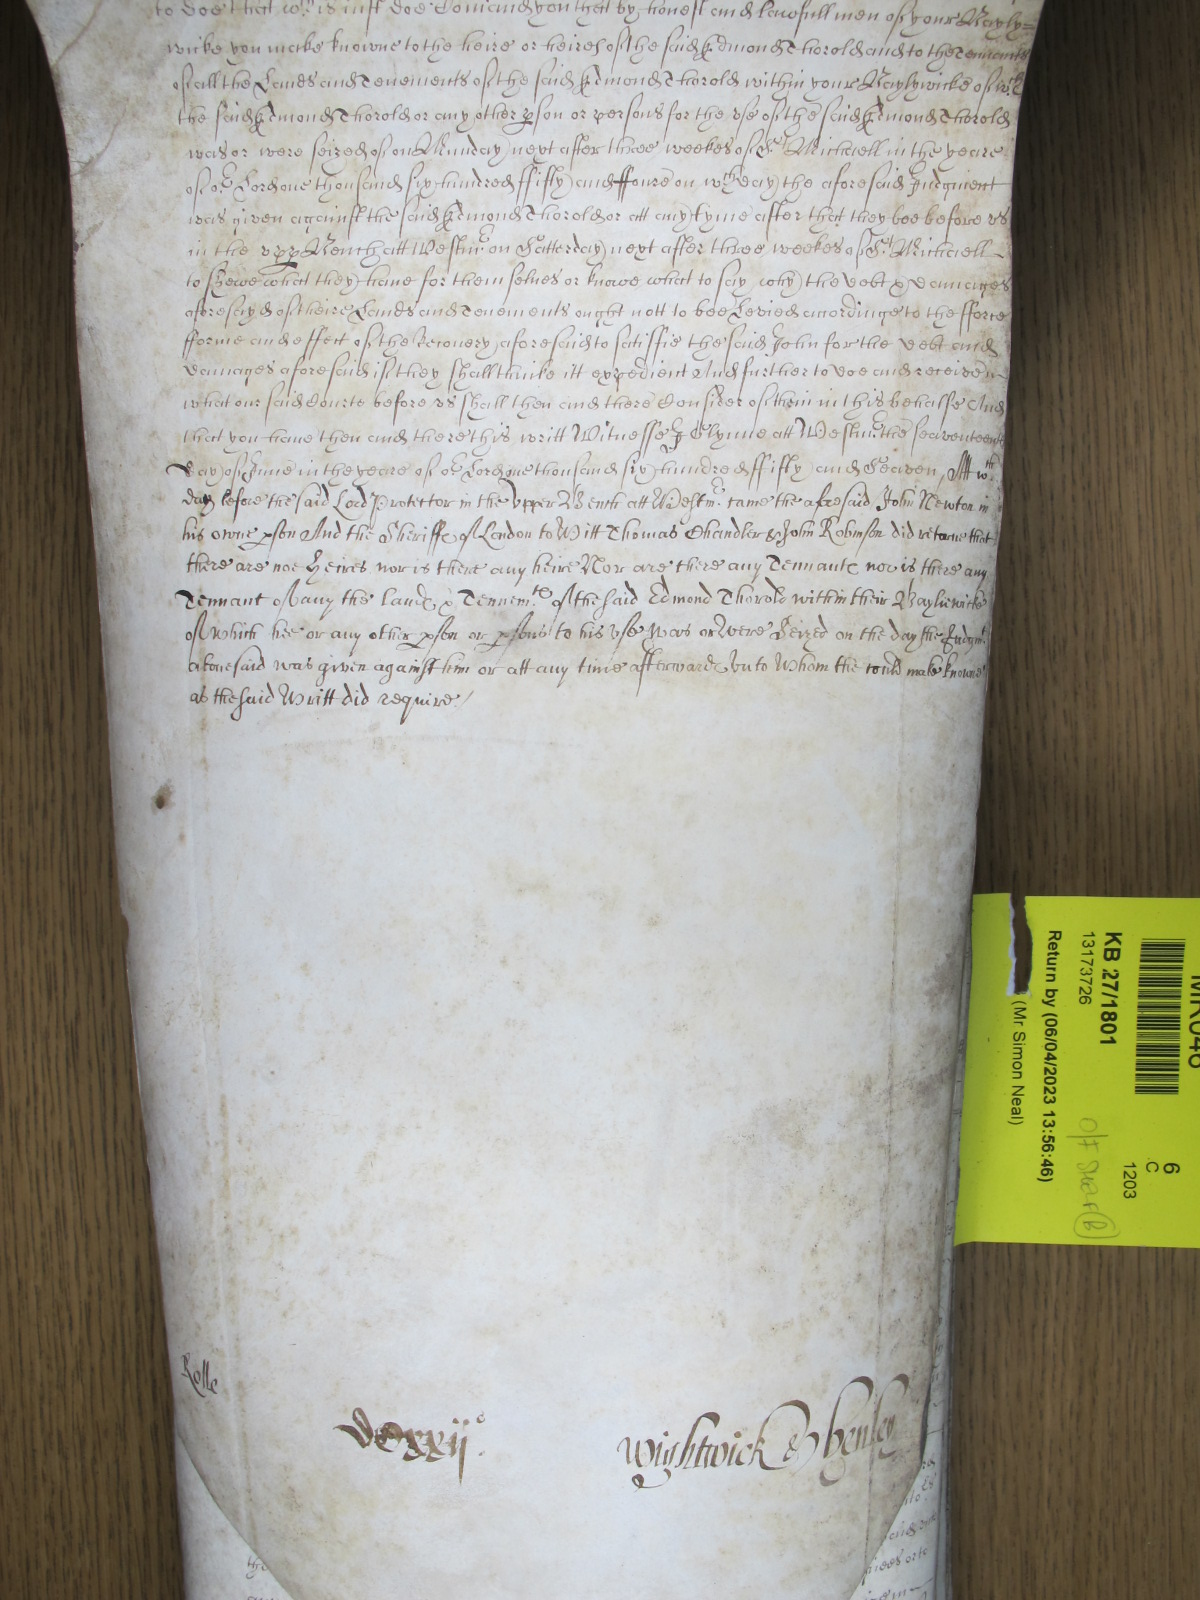 to doe that wch is iust doe Comaund you that by honest and lawfull men of your Bayly=
wicke you make knowne to the heire or heires of the said Edmond Thorold and to the Tennants
of all the Lands and Tenements of the said Edmond Thorold within your Baylywicke of wch
the said Edmond Thorold or any other pson or persons for the vse of the said Edmond Thorold
was or were seized of on Munday next after three weekes of St Michaell in the yeare
of or Lord one thousand six hundred ffifty and ffoure on wch day the aforesaid Iudgment
was given against the said Edmond Thorold or att any tyme after that they bee before vs
in the vpp Bench att Westmr on Satterday next after three weekes of St Michaell
to shewe what they haue for them selues or knowe what to say why the debt & damages
aforesayd of theire Lands and Tenements ought nott to bee Levied accordinge to the fforce
fforme and effect of the Recovery aforesaid to satisfie the said John for the debt and
damages aforesaid if they shall thinke itt expedient And further to doe and receive
what our said Courte before vs shall then and there Consider of them in this behalfe And
that you haue then and there this writt Witnesse J Glynne att Westmr the seaventeenth
day of June in the yeare of or Lord one thousand six hundred ffifty and Seaven, Att wch
day before the said Lord Protector in the Vpper Bench att Westmr came the aforesaid John Newton in
his owne pson And the Sheriffe of London to Witt Thomas Chandler & John Robinson did retorne that
there are noe Heires nor is there any heire Nor are there any Tennants nor is there any
Tennant of any the lands & Tennemts of the said Edmond Thorold within their Bayliewicke
of which hee or any other pson or psons to his vse was or were Seized on the day the Iudgmt
abouesaid was given against him or att any time afterwards vnto whom the could make knowne
as the said Writt did require
Rolle
Wightwick & henley
KB 27/1801
13173726
Return by (06/04/2023 13:56:46)
(Mr Simon Neal)
6
C
1203